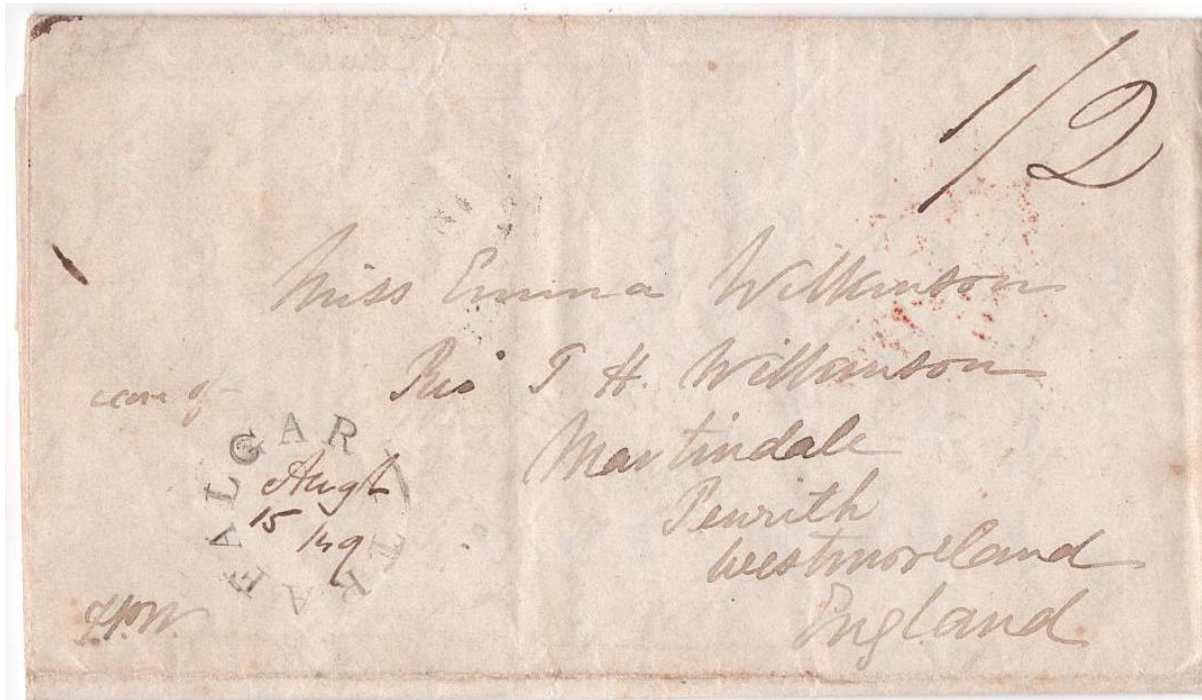 1/2
Miss Emma Wilkinson
care of Rev T H. Wilkinson
Martindale
Penrith
Westmoreland
England
TRAFALGAR
Augt
15